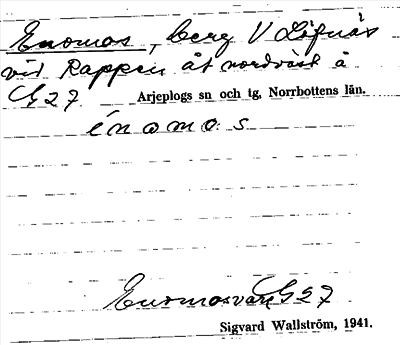 Enomos, berg V Löfnäs
vid Rappen åt nordväst å
G 27 Arjeplogs sn och tg, Norrbottens län.
énomos
Enomosvare G 27
Sigvard Wallström, 1941.